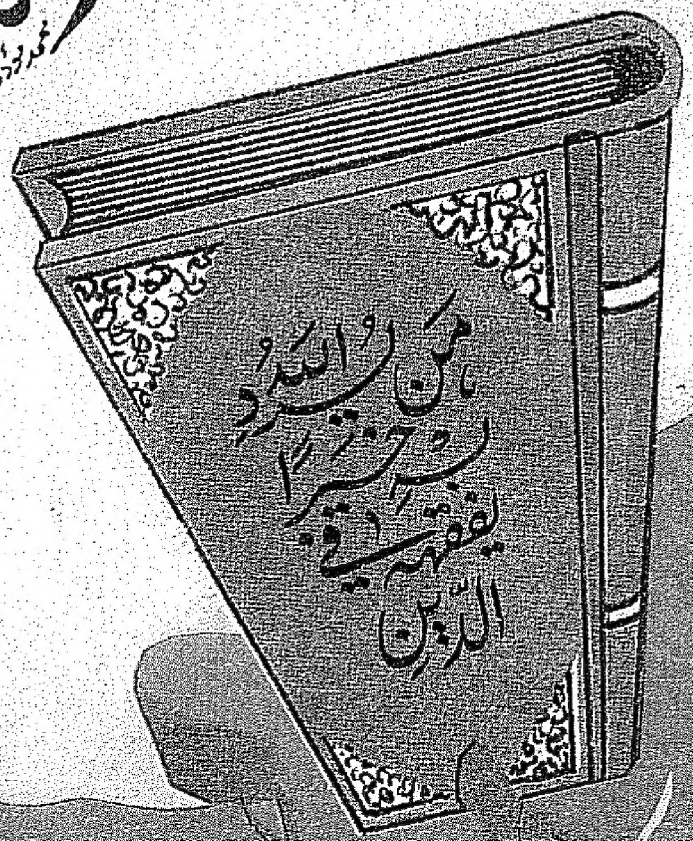 مَن يُرِدِ اللهُ
بِهِ خَيْرًا
يفقهه في
الدِّينِ